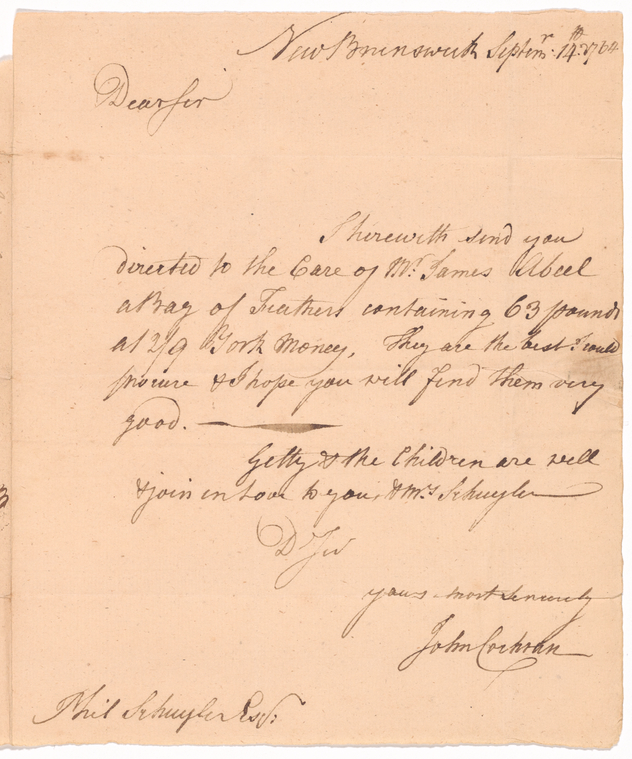 New Brunswick Septemr. 14th. 1764
Dear Sir
I herewith send you
directed to the Care of Mr. James Abeel
a Bag of Feathers containing 63 pounds
at 2/9 York Money, They are the best I could
procure & I hope you will find them very
good.
Getty & the Children are well
& join in Love to you, & Mrs Schuyler
Dr Sir
yours most sincerely
John Cochran
Phil Schuyler Esqr.